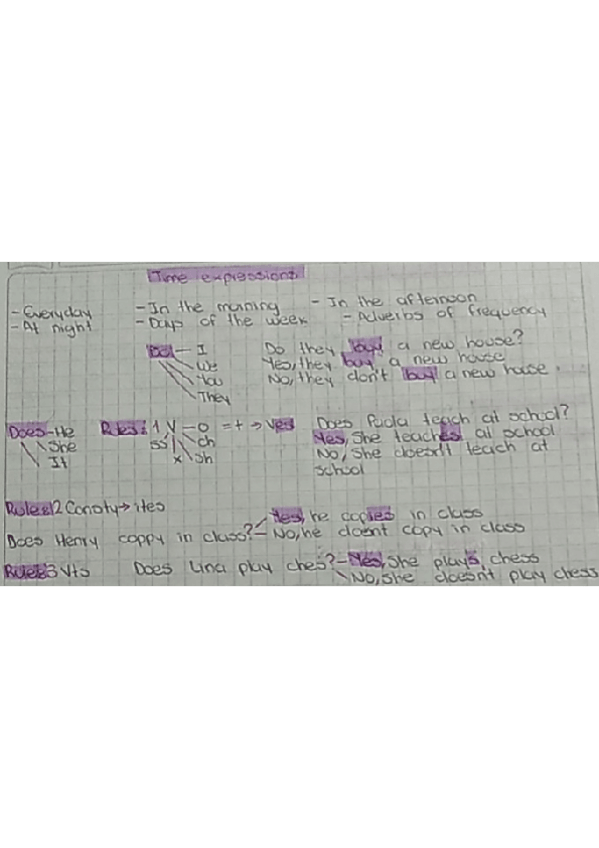 Time expressions
- Everyday - In the morning - In the afternoon
- At night - Days of the week - Adverbs of frequency
Do - I Do they buy a new house?
We Yes, they buy a new house
You No, they don't buy a new house.
They
Does - He Rules: 1 V - o = + → Ves Does Paola teach at school?
She ss ch Yes, She teaches at school
It x sh No, She doesn't teach at
school
Rules 2 Con → ies Yes, he copies in class
Does Henry coppy in class? - No, he doesnt copy in class
Rules 3 V+s Does Lina play ches? - Yes, She plays chess
No, She doesnt play chess